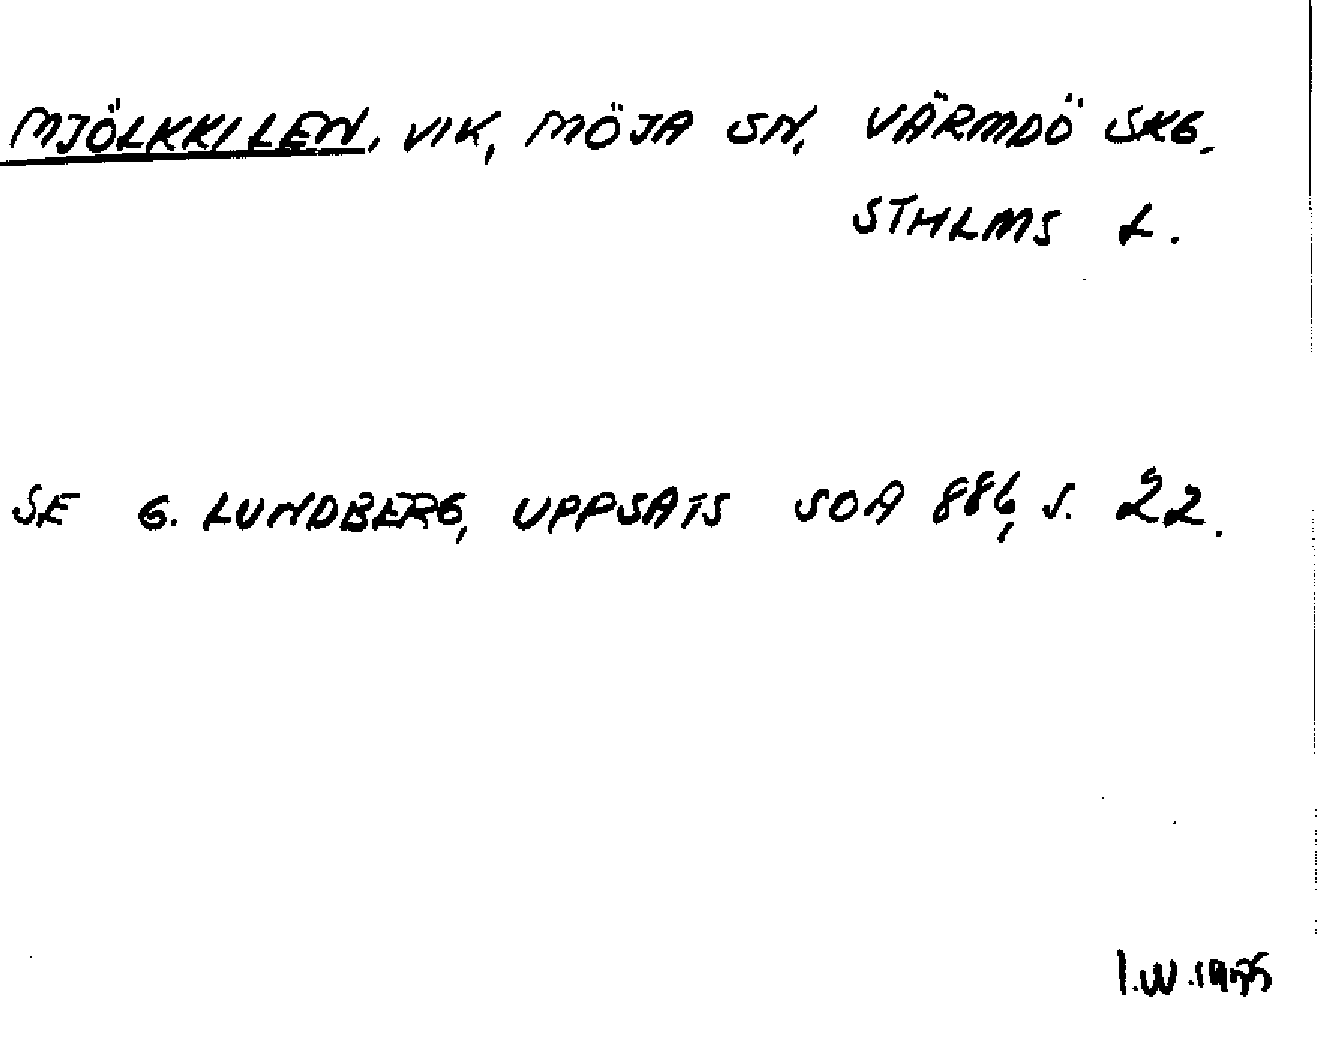 MJÖLKKILEN, VIK, MÖJA SN, VÄRMDÖ SKG.
STHLMS L.
SE G. LUNDBERG, UPPSATS SOA 886, S. 22.
I.W.